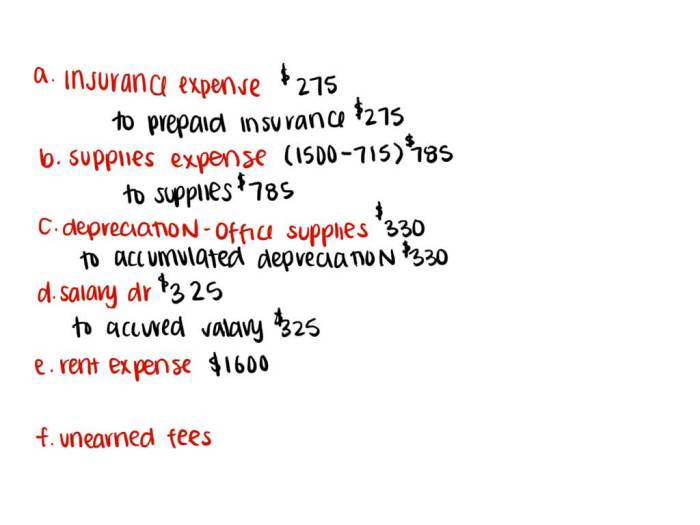 a. insurance expense $275
to prepaid insurance $275
b. supplies expense (1500-715) $785
to supplies $785
c. depreciation - office supplies $330
to accumulated depreciation $330
d. salary dr $325
to accured valary $325
e. rent expense $1600
f. unearned fees